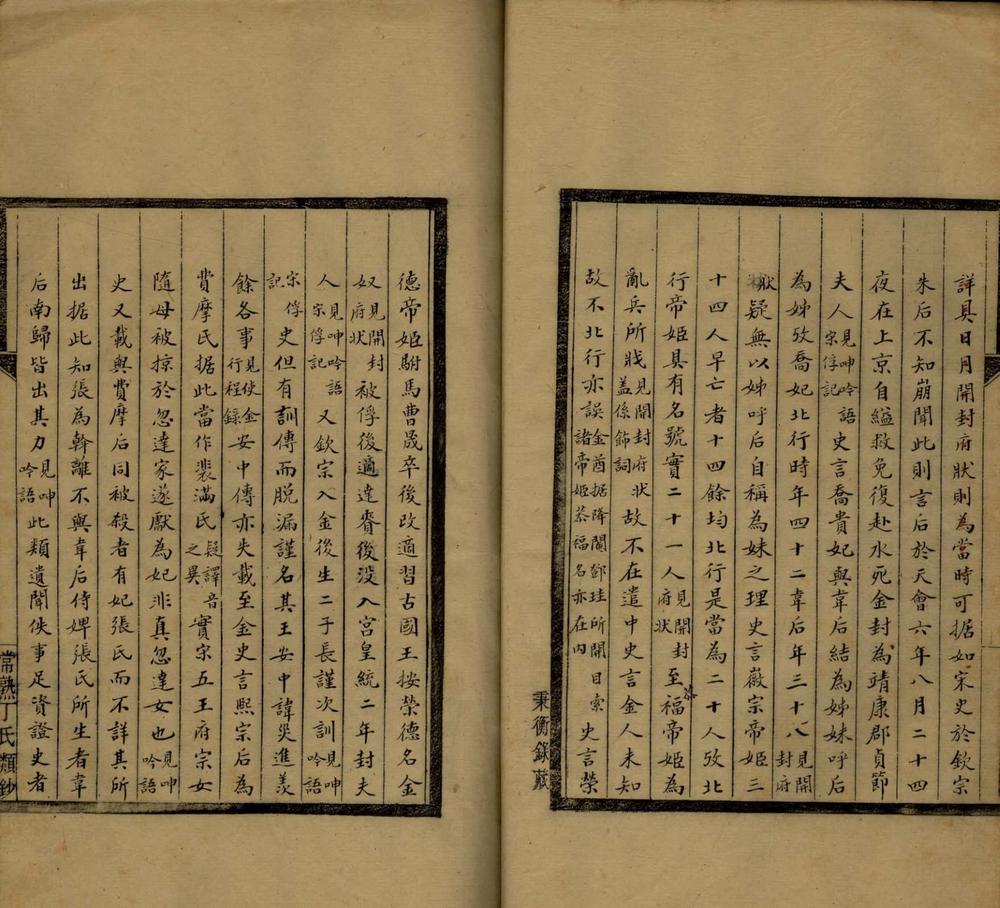 詳具日月開封府狀則為當時可据如宋史於欽宗
朱后不知崩聞此則言后於天會六年八月二十四
夜在上京自縊救免復赴水死金封為靖康郡貞節
夫人見呻吟語宋俘記史言喬貴妃與韋后結為姊妹呼后
為姊攷喬妃北行時年四十二韋后年三十八見開封府
狀疑無以姊呼后自稱為妹之理史言徽宗帝姬三
十四人早亡者十四餘均北行是當為二十人攷北
行帝姬具有名號實二十一人見開封府狀至福帝姬為
恭
亂兵所戕見開封府狀蓋係飾詞故不在遣中史言金人未知
故不北行亦誤金酋据降閹鄧珪所開目索諸帝姬恭福名亦在內史言榮
秉衡錄藏
德帝姬駙馬曹晟卒後改適習古國王按榮德名金
奴見開封府狀被俘後適達賚後没入宮皇統二年封夫
人見呻吟語宋俘記又欽宗入金後生二子長謹次訓見呻吟語
宋俘記史但有訓傳而脱漏謹名其王安中諱災進羨
餘各事見使金行程錄安中傳亦失載至金史言熙宗后為
費摩氏据此當作裴滿氏疑譯音之異實宗五王府宗女
隨母被掠於忽達家遂獻為妃非真忽達女也見呻吟語
史又載與費摩后同被殺者有妃張氏而不詳其所
出据此知張為斡離不與韋后侍婢張氏所生者韋
后南歸皆出其力見呻吟語此類遺聞佚事足資證史者
常熟丁氏類鈔